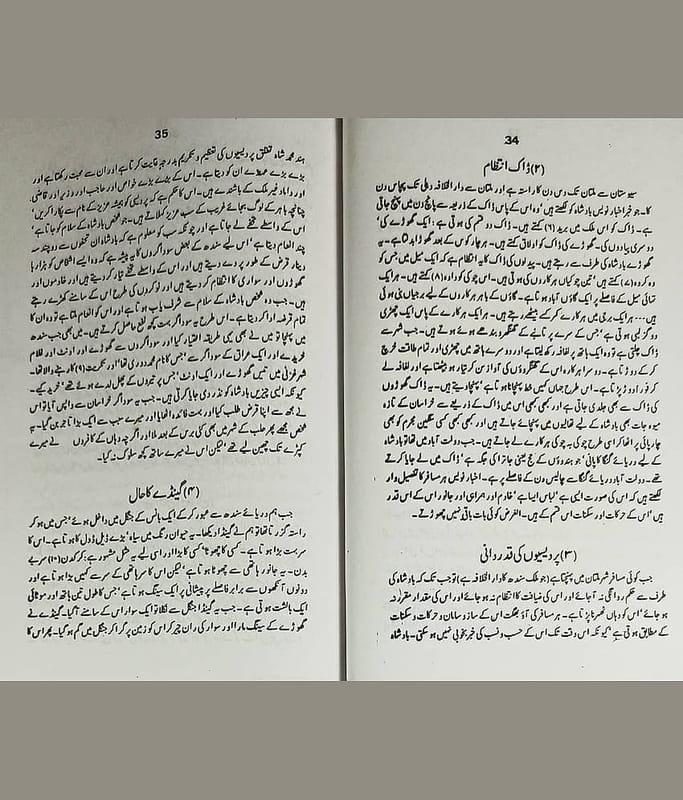 34
(۲) ڈاک انتظام
سیوستان سے ملتان تک دس دن کا راستہ ہے اور ملتان سے دار الخلافہ دہلی تک پچاس دن
کا۔ جو خبر اخبار نویس بادشاہ کو لکھتے ہیں' وہ اس کے پاس ڈاک کے ذریعہ سے پانچ دن میں پہنچ جاتی
ہے۔ ڈاک کو اس ملک میں برید (۶) کہتے ہیں۔ ڈاک دو قسم کی ہوتی ہے: ایک گھوڑے کی'
دوسری پیادوں کی۔ گھوڑے کی ڈاک کو اولاق کہتے ہیں۔ ہر چار کوس کے بعد گھوڑا بدلتا ہے۔ یہ
گھوڑے بادشاہ کی طرف سے رہتے ہیں۔ پیدلوں کی ڈاک کا یہ انتظام ہے کہ ایک میل میں جس کو
وہ کروہ (۷) کہتے ہیں' تین چوکیاں ہرکاروں کی ہوتی ہیں۔ اس چوکی کو داوہ (۸) کہتے ہیں۔ ہر ایک
تہائی میل کے فاصلے پر ایک گاؤں آباد ہوتا ہے۔ گاؤں کے باہر ہرکاروں کے لیے برجیاں بنی ہوتی
ہیں... ہر ایک برجی میں ہرکارے کمر کسے بیٹھے رہتے ہیں۔ ہر ایک ہرکارے کے پاس ایک چھڑی
دو گز لمبی ہوتی ہے' جس کے سرے پر تانبے کے گھنگرو بندھے ہوئے ہوتے ہیں۔ جب شہر سے
ڈاک چلتی ہے تو وہ ایک ہاتھ پر لفافہ رکھ لیتا ہے اور دوسرے ہاتھ میں چھڑی اور تمام طاقت خرچ
کر کے دوڑتا ہے۔ دوسرا ہرکارہ اس کے گھنگروؤں کی آواز سن کر تیار ہو بیٹھتا ہے اور لفافہ لے
کر فوراً دوڑ پڑتا ہے۔ اس طرح جہاں کہیں خط پہنچانا ہوتا ہے' پہنچا دیتے ہیں۔ یہ ڈاک گھوڑوں
کی ڈاک سے بھی جلدی جاتی ہے اور کبھی کبھی اس میں ڈاک کے ذریعے سے خراسان کے تازہ
میوہ جات بھی بادشاہ کے لیے تھالیوں میں پہنچائے جاتے ہیں اور کبھی کبھی کسی سنگین مجرم کو بھی
چارپائی پر اٹھا کر اسی طرح چوکی بہ چوکی ہرکارے لے جاتے ہیں۔ جب دولت آباد میں تھا تو بادشاہ
کے لیے دریائے گنگا کا پانی' جو ہندوؤں کے حج یعنی جاترا کی جگہ ہے' ڈاک میں لے جایا کرتے
تھے۔ دولت آباد دریائے گنگا سے چالیس دن کے فاصلے پر ہے۔ اخبار نویس ہر مسافر کا تفصیل وار
لکھتے ہیں کہ اس کی صورت ایسی ہے' لباس ایسا ہے' خادم اور ہمراہی اور جانور اس کے اس قدر
ہیں' اس کے حرکات اور سکنات اس قسم کے ہیں۔ الغرض کوئی بات باقی نہیں چھوڑتے۔
(۳) پردیسیوں کی قدردانی
جب کوئی مسافر شہر ملتان میں پہنچتا ہے (جو ملک سندھ کا دار الخلافہ ہے) تو جب تک کہ بادشاہ کی
طرف سے حکم روانگی نہ آ جائے اور اس کی ضیافت کا انتظام نہ ہو جائے اور اس کی مقدار مقرر نہ
ہو جائے' اس کو وہاں ٹھہرنا پڑتا ہے۔ ہر مسافر کی آؤ بھگت اس کے ساز و سامان و حرکات و سکنات
کے مطابق ہوتی ہے' کیونکہ اس وقت تک اس کے حسب و نسب کی خبر بخوبی نہیں ہو سکتی۔ بادشاہ
35
ہند محمد شاہ تغلق پردیسیوں کی تعظیم و تکریم بدرجہ غایت کرتا ہے اور ان سے محبت رکھتا ہے اور
بڑے بڑے عہدے ان کو دیتا ہے۔ اس کے بڑے بڑے خواص اور حاجب اور وزیر اور قاضی
اور داماد غیر ملک کے باشندے ہیں۔ اس کا حکم ہے کہ پردیسی کو ہمیشہ عزیز کے نام سے پکارا کریں'
چنانچہ باہر کے لوگ بجائے غریب کے سب عزیز کہلاتے ہیں۔ جو شخص بادشاہ کے سلام کو جاتا ہے'
اس کے واسطے تحفے لے جاتا ہے اور چونکہ سب کو معلوم ہے کہ بادشاہ ان تحفوں سے دوچند سہ
چند انعام دیتا ہے' اس لیے سندھ کے بعض سوداگروں کا یہ پیشہ ہے کہ وہ ایسے اشخاص کو ہزارہا
دینار قرض کے طور پر دے دیتے ہیں اور اس کے واسطے تحفے تیار کر دیتے ہیں اور خادموں اور
گھوڑوں اور سواری کا انتظام کر دیتے ہیں اور نوکروں کی طرح اس کے سامنے کھڑے رہتے
ہیں۔ جب وہ شخص بادشاہ کے سلام سے شرف یاب ہوتا ہے اور اس کو انعام ملتا ہے تو وہ ان کا
تمام قرضہ ادا کر دیتا ہے۔ اس طرح یہ سوداگر بہت کچھ نفع حاصل کرتے ہیں۔ میں بھی جب سندھ
میں پہنچا تو میں نے بھی یہی طریقہ اختیار کیا اور سوداگروں سے گھوڑے اور اونٹ اور غلام
خریدے اور ایک عراق کے سوداگر سے' جس کا نام محمد دوری تھا' اور تکریت (۹) کا رہنے والا تھا۔
شہر غزنی میں تیس گھوڑے اور ایک اونٹ' جس پر تیروں کے پھل لدے ہوئے تھے' خرید کیے۔
کیونکہ ایسی چیزیں بادشاہ کو نذر دی جایا کرتی ہیں۔ جب یہ سوداگر خراسان سے واپس آیا تو اس
نے مجھ سے اپنا قرض طلب کیا اور بہت فائدہ اٹھایا اور میرے سبب سے ایک بڑا تاجر بن گیا۔ یہ
شخص مجھے پھر حلب کے شہر میں بھی کئی برس کے بعد ملا اور اگرچہ وہاں کے کافروں نے میرے
کپڑے تک چھین لیے تھے' لیکن اس نے میرے ساتھ کچھ سلوک نہ کیا۔
(۴) گینڈے کا حال
جب ہم دریائے سندھ سے عبور کر کے ایک بانس کے جنگل میں داخل ہوئے' جس میں ہو کر
راستہ گزرتا تھا تو ہم نے گینڈا دیکھا۔ یہ حیوان رنگ میں سیاہ' بڑے ڈیل ڈول کا ہوتا ہے۔ اس کا
سر بہت بڑا ہوتا ہے۔ کسی کا چھوٹا' کسی کا بڑا اور اسی لیے یہ مثل مشہور ہے: کرکدن (۱۰) سر بے
بدن۔ یہ جانور ہاتھی سے چھوٹا ہوتا ہے' لیکن اس کا سر ہاتھی کے سر سے کہیں بڑا ہوتا ہے اور
دونوں آنکھوں سے برابر فاصلے پر پیشانی پر ایک سینگ ہوتا ہے' جس کا طول تین ہاتھ اور موٹائی
ایک بالشت ہوتی ہے۔ جب یہ گینڈا جنگل سے نکلا تو ایک سوار اس کے سامنے آ گیا۔ گینڈے نے
گھوڑے کے سینگ مارا اور سوار کی ران چیر کر اس کو زمین پر گرا کر جنگل میں گم ہو گیا۔ پھر اس کا